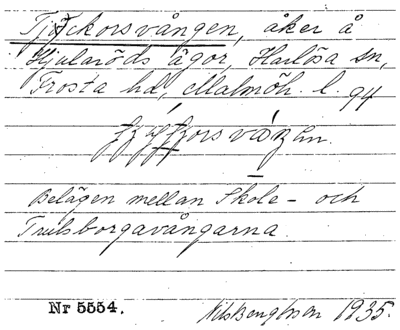 Tjockorsvången, åker å
Hjularöds ägor, Harlösa sn,
Frosta hd, Malmöh. l. 94
Belägen mellan Skole- och
Trulsborgavångarna.
Nr 5554.
Nils Bengtsson 1935.